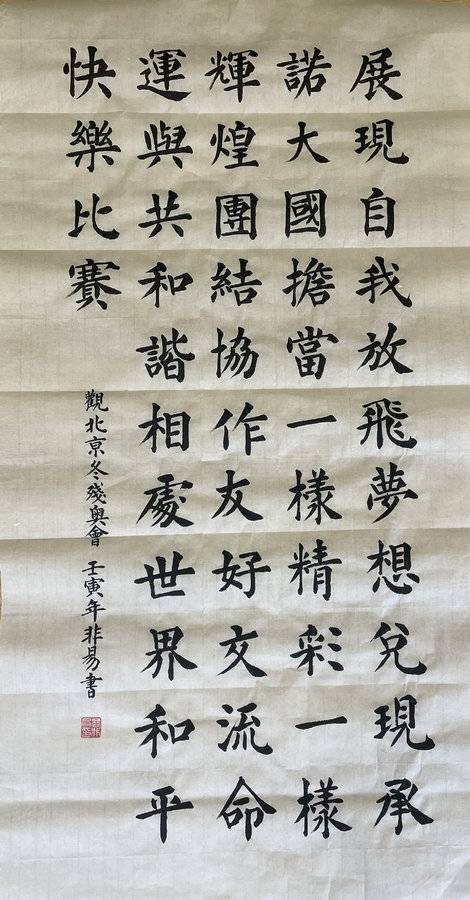 展現自我放飛夢想兌現承
諾大國擔當一樣精彩一樣
輝煌團結協作友好交流命
運與共和諧相處世界和平
快樂比賽
觀北京冬殘奧會 壬寅年非易書